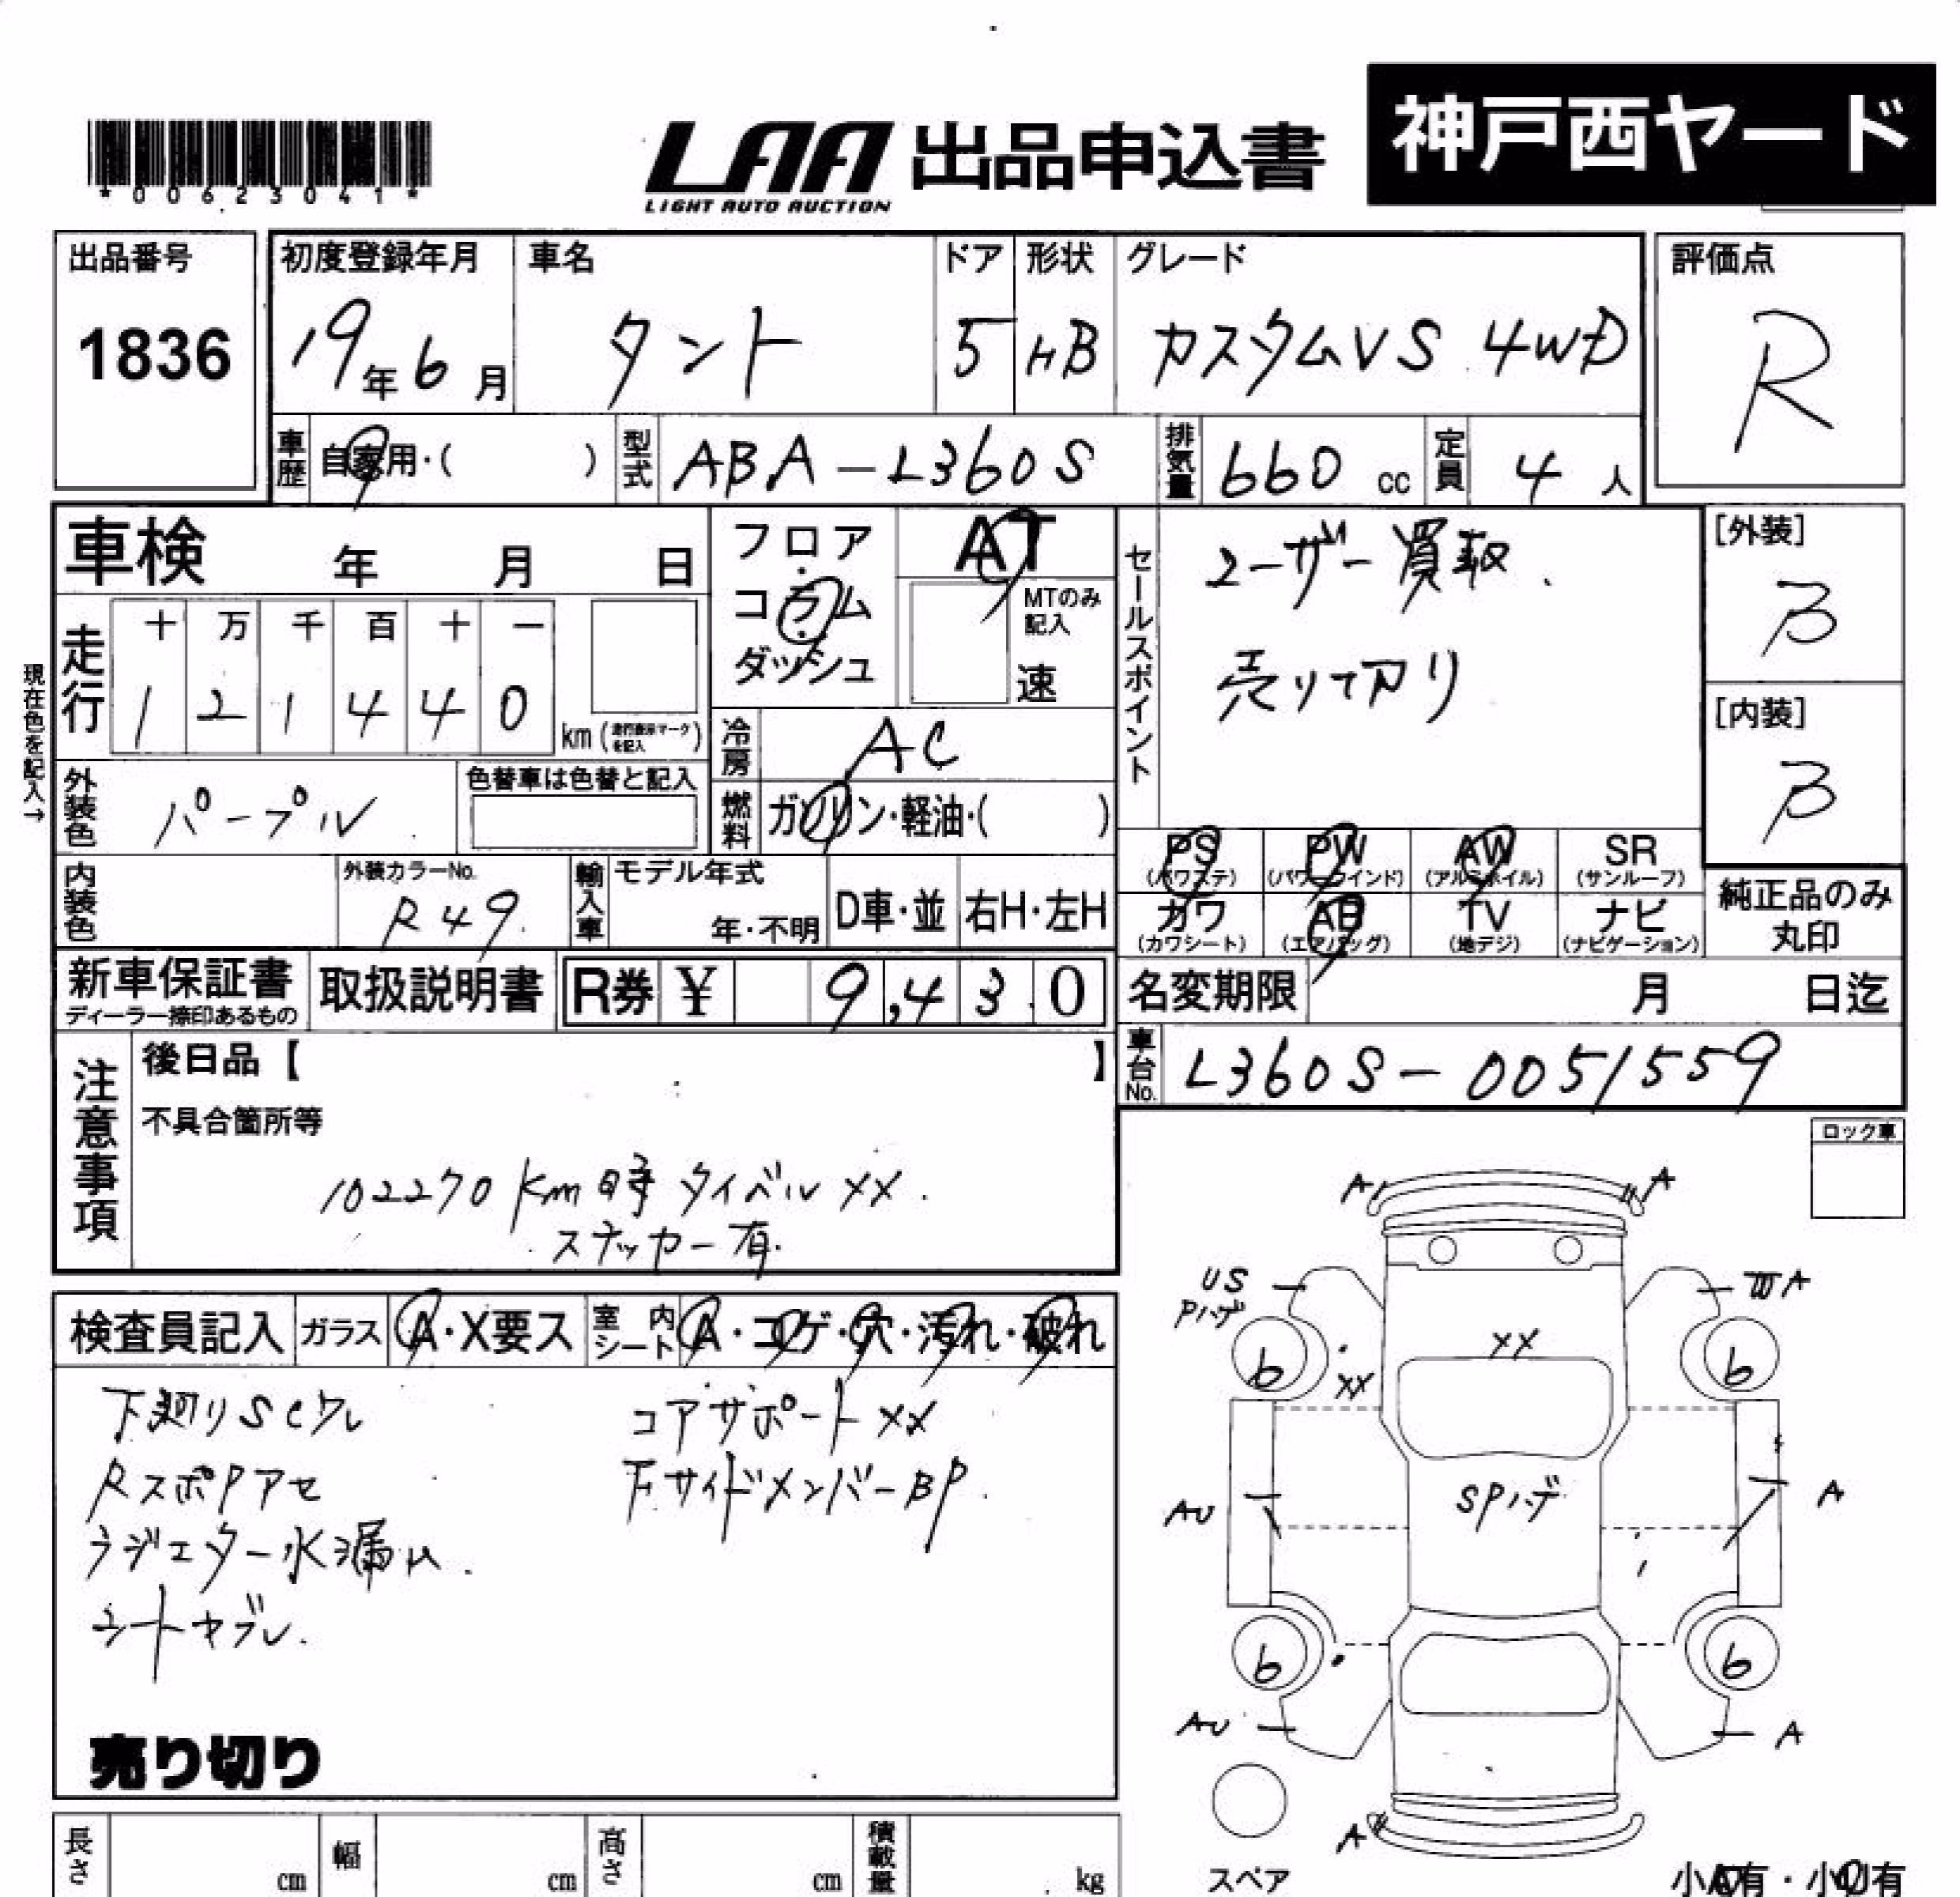 神戸西ヤード
*00623041*
LAA 出品申込書
LIGHT AUTO AUCTION
出品番号
1836
初度登録年月
19年6月
車名
タント
ドア
5
形状
HB
グレード
カスタムVS 4WD
評価点
R
車歴
自家用・( )
型式
ABA-L360S
排気量
660 cc
定員
4 人
車検 年 月 日
フロア・コラム・ダッシュ
AT
MTのみ記入
速
セールスポイント
ユーザー買取.
売り切り
[外装]
B
[内装]
B
現在色を記入→
走行
十 万 千 百 十 一
1 2 1 4 4 0
km(走行表示マークを記入)
冷房
AC
外装色
パープル
色替車は色替と記入
燃料
ガソリン・軽油・( )
PS (パワステ)
PW (パワーウインド)
AW (アルミホイル)
SR (サンルーフ)
カワ (カワシート)
AB (エアバッグ)
TV (地デジ)
ナビ (ナビゲーション)
純正品のみ丸印
内装色
外装カラーNo.
R49
輸入車
モデル年式
年・不明
D車・並
右H・左H
新車保証書
ディーラー捺印あるもの
取扱説明書
R券 ¥ 9,430
名変期限 月 日迄
車台No.
L360S-0051559
注意事項
後日品【 】
不具合箇所等
102270km時 タイベルXX.
ステッカー有.
ロック車
検査員記入
ガラス
A・X要ス
室内シート
A・コゲ・穴・汚れ・破れ
下廻りSCワレ
RスポPアセ
ラジエター水漏レ.
シートヤブレ.
コアサポートXX
FサイドメンバーBP.
売り切り
A
A
US
Pハゲ
WA
XX
b
XX
b
AU
SPハゲ
A
b
b
AU
A
A
スペア
小A有・小U有
長さ cm
幅 cm
高さ cm
積載量 kg